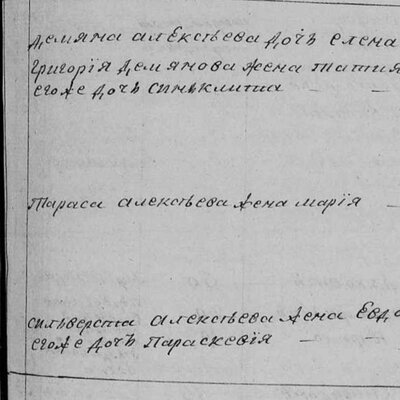 Демяна алексѣева дочь елена
григорія Демянова жена тати
егоже дочь синклитиа
Тараса алексѣева жена марія
сильверста алексѣева жена Евдо
егоже дочь Параскевія